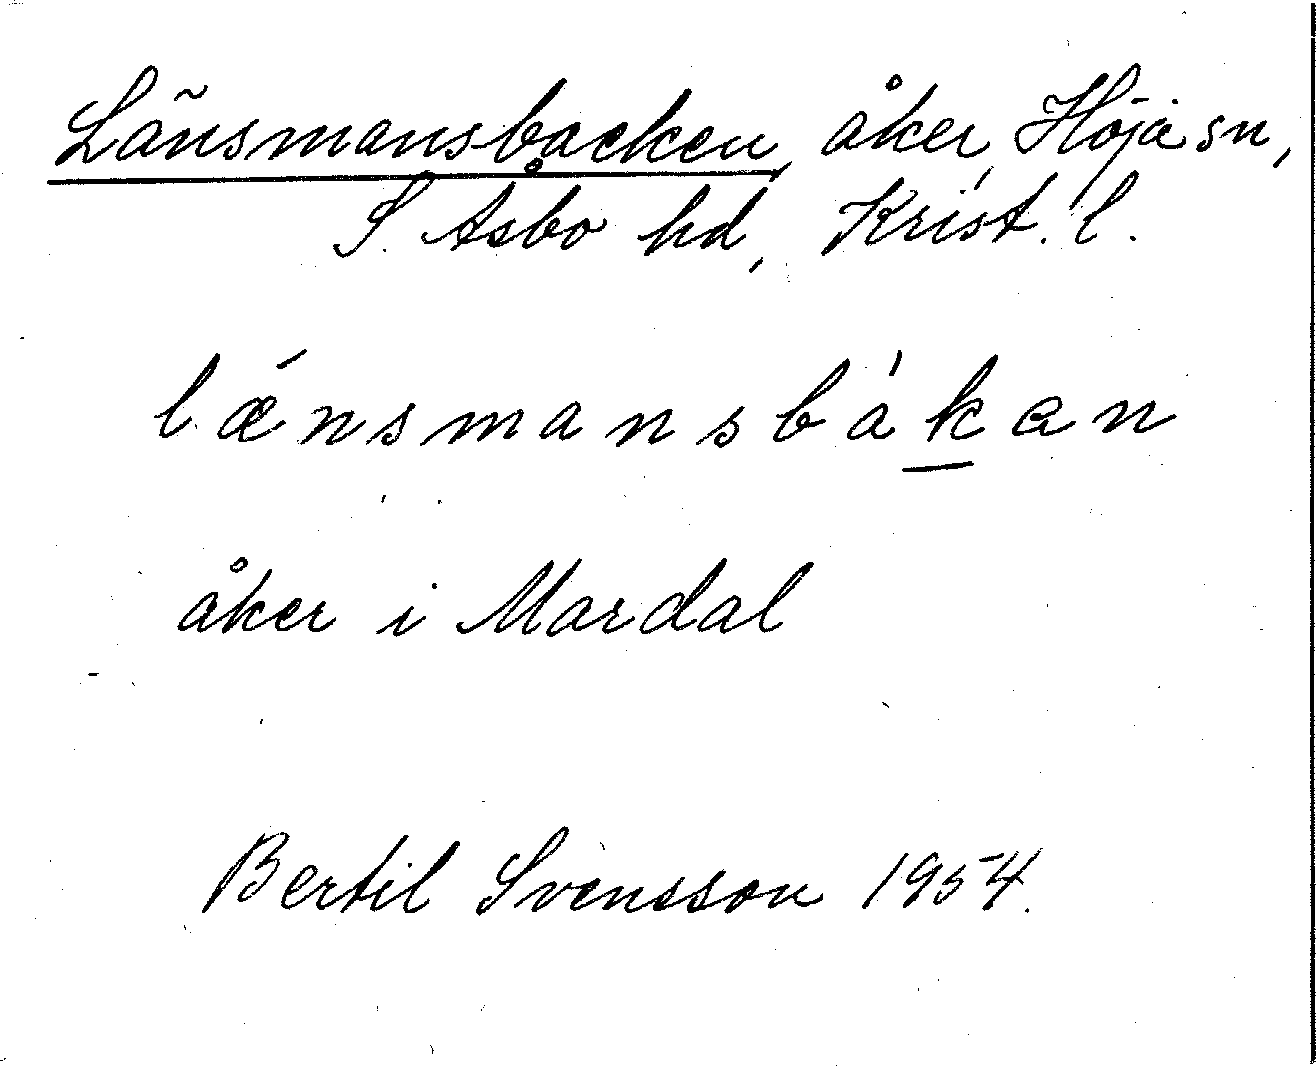 Länsmansbacken, åker, Höja sn,
S. Åsbo hd, Krist. l.
lǽnsmansbákan
åker i Mardal
Bertil Svensson 1954.